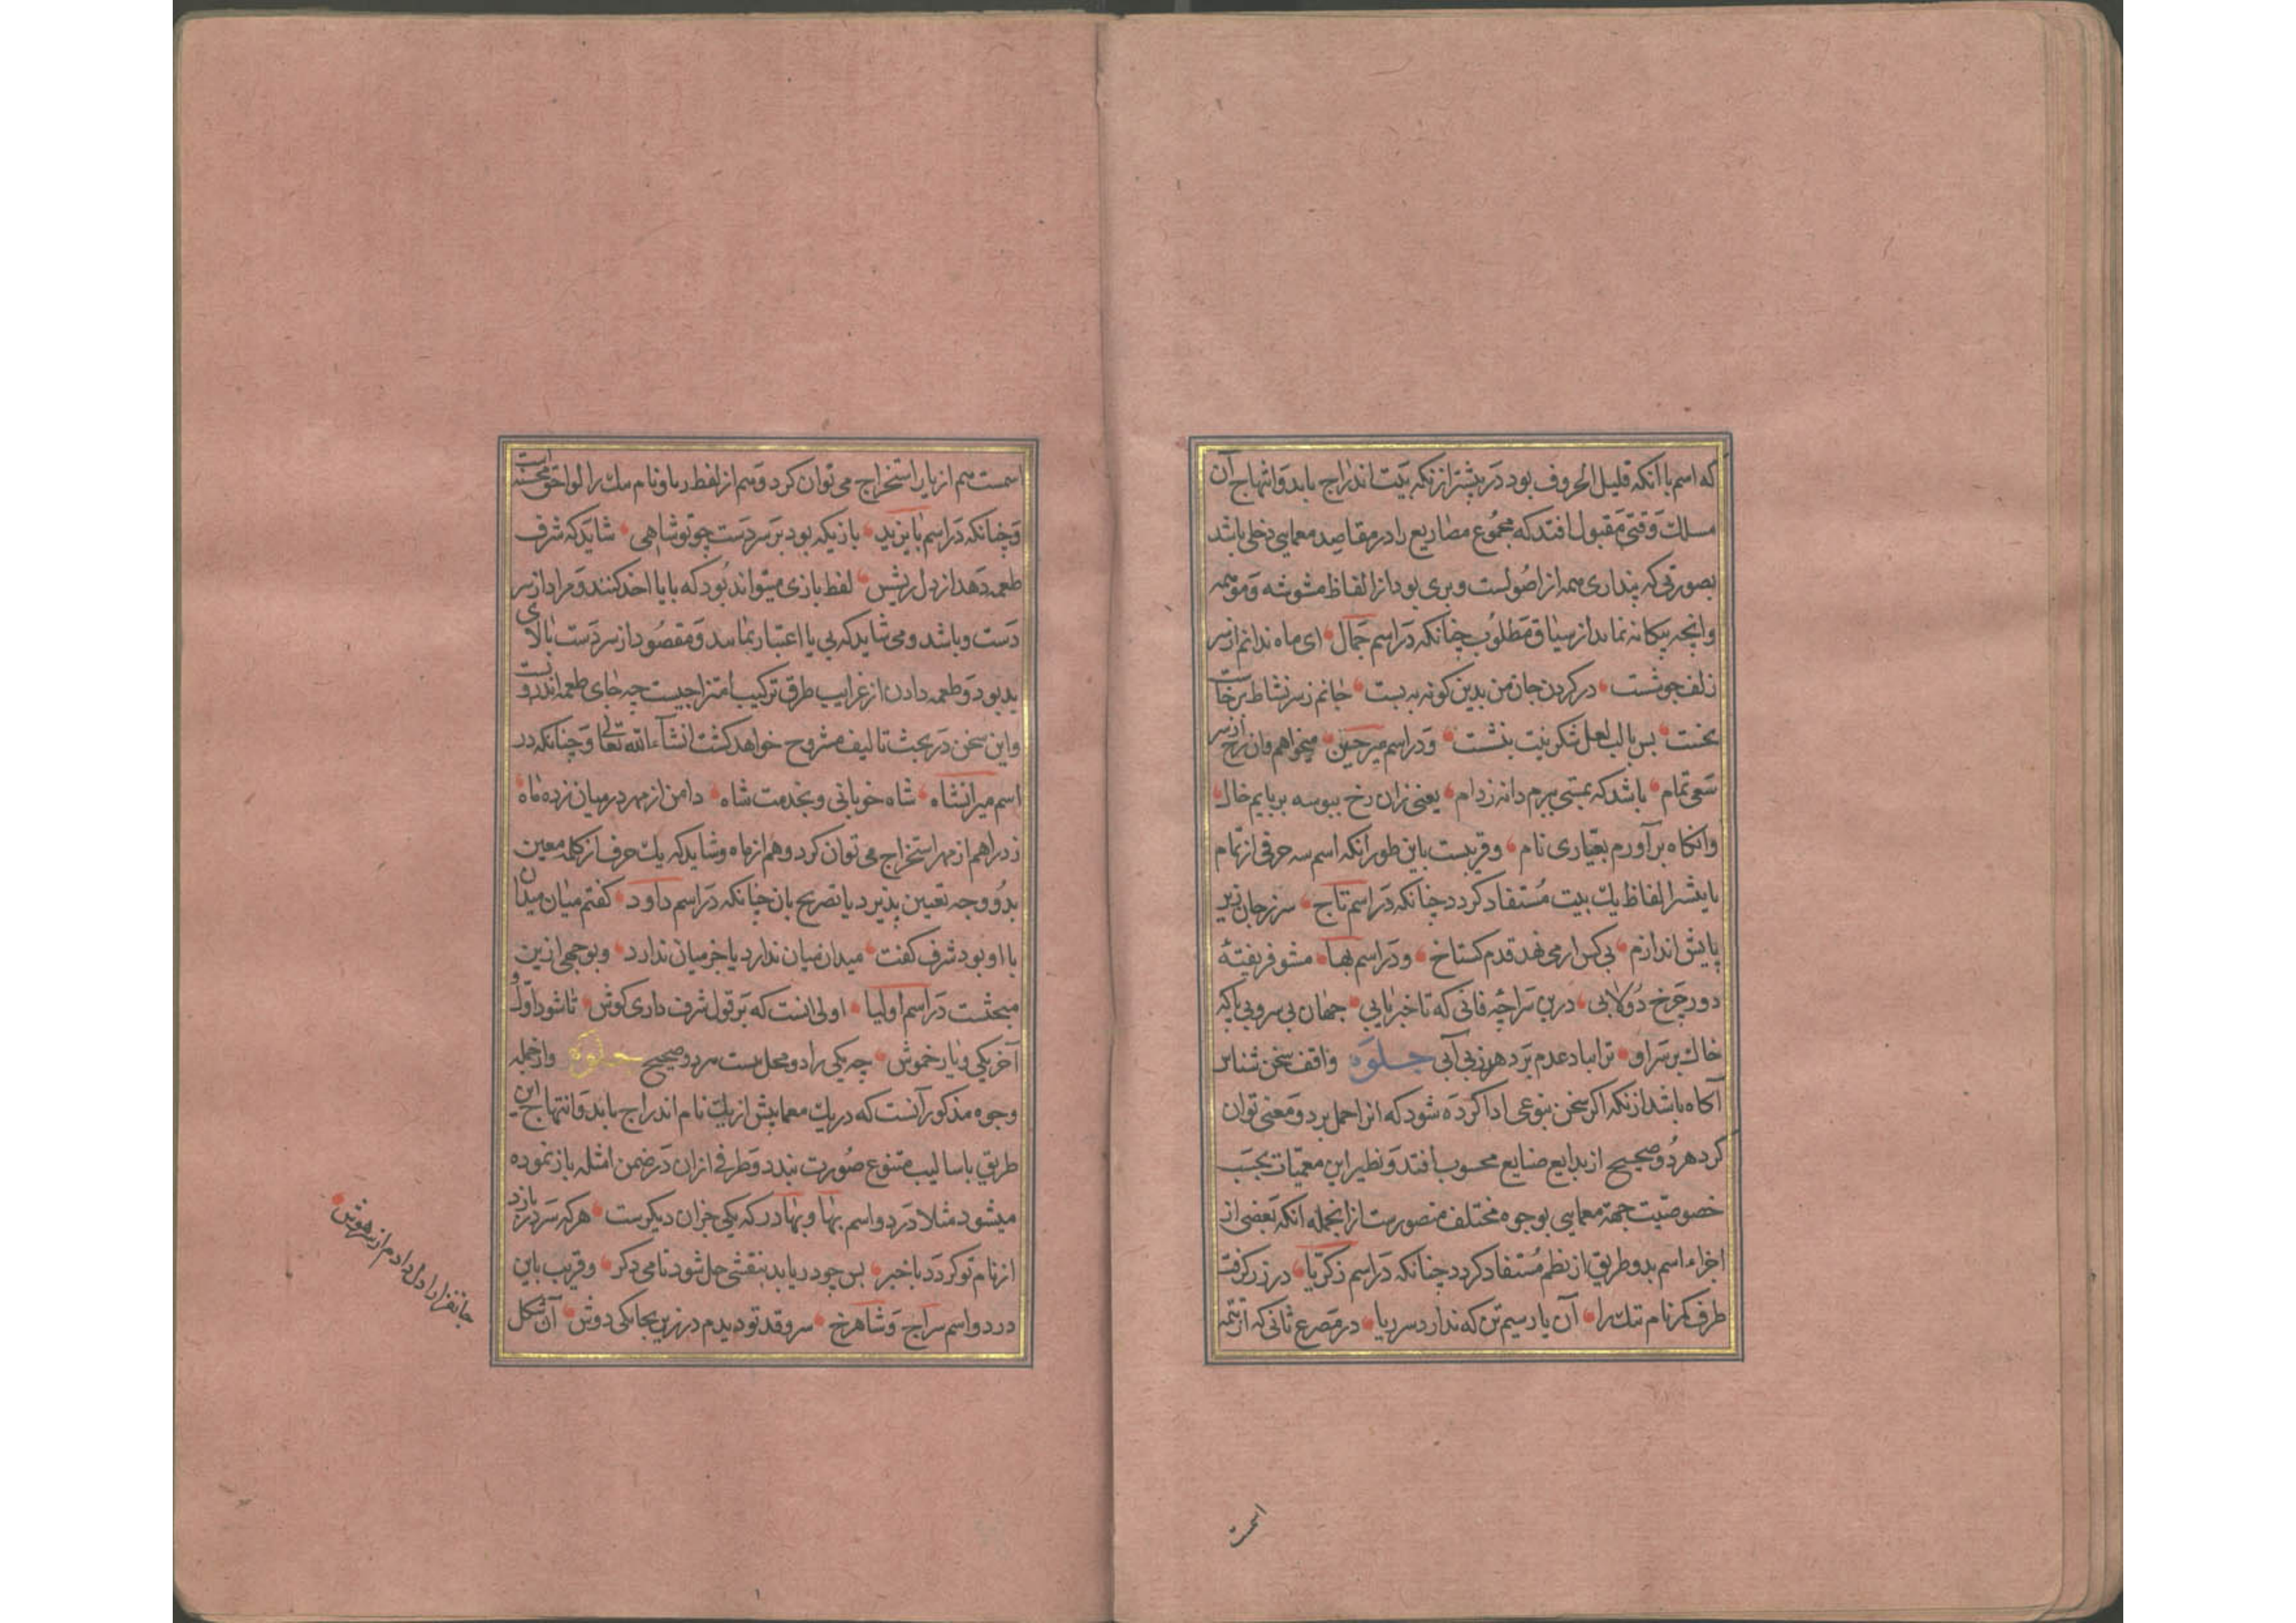 که اسم با آنکه قلیل الحروف بود در بیشتر از نکه بیت اندراج یابد و انتهاج آن
مسلک وقتی مقبول افتد که مجموع مصاریع را در مقاصد معمایی دخلی باشد
بصورتی که پنداری همه از اصولست و بری بود از الفاظ مشوشه و موهمه
وانچه بیکانه نماید از سیاق مطلوب چنانکه در اسم جمال ای ماه ندانم از سر
زلف چو شست در کردن جان من بدین کونه به بست جانم ز سر نشاط برخاست
نخست پس با لب لعل شکرینت بنشست و در اسم میر حسین میخواهم وان رخ از سر
سعی تمام باشد که بمستی ببرم دانه ز دام یعنی زان رخ ببوسه بربایم خال
وانکاه برآورم بعیاری نام و قریبست باین طور آنکه اسم سه حرفی از تمام
یا بیشتر الفاظ یک بیت مستفاد کردد چنانکه در اسم تاج سر ز جان زیر
پایش اندازم بی کس ار می نهد قدم کستاخ و در اسم بها مشو فریفتهٔ
دور چرخ دولابی درین سراچه فانی که تا خبر یابی جهان بی سر و بی پا که
خاک بر سر او ترا بباد عدم بر دهد ز بی آبی جلوه واقف سخن شناس
آکاه باشد از نکه اکر سخن بنوعی ادا کرده شود که انرا حمل بر دو معنی توان
کرد هر دو صحیح از بدایع صنایع محسوب افتد و نظیر این معمیات بحسب
خصوصیت جهة معمایی بوجوه مختلف منصورست از انجمله آنکه بعضی از
اجزاء اسم بدو طریق از نظم مستفاد کردد چنانکه در اسم زکریا در زر کرفت
طرف کمر نام تنک را آن یار سیم تن که ندارد سر ریا در مصرع ثانی که از تتمه
اسمست
اسمست هم از یار استخراج می توان کرد و هم از لفظ ریا و نام تنک را لواحق محسنه است
و چنانکه در اسم بایزید بازیکه بود بر سر دست چو تو شاهی شاید که شرف
طعمه دهد از دل ریش لفظ بازی میتواند بود که بایا اخذ کنند و مراد از سر
دست و باشد و می شاید که بی یا اعتبار نمایند و مقصود از سر دست بالای
ید بود و طعمه دادن از غرایب طرق ترکیب امتزاجیست چه جای طعمه اندرونست
و این سخن در بحث تالیف مشروح خواهد کشت انشآء الله تعالی و چنانکه در
اسم میرانشاه شاه خوبانی و بخدمت شاه دامن از مهر در میان زده ماه
زد را هم از مهر استخراج می توان کرد و هم از ماه و شاید که یک حرف از کلمه معین
بدو وجه تعیین پذیرد با تصریح بان چنانکه در اسم داود کفتم میان میدان
با او بود شرف کفت میدان میان ندارد یا خر میان ندارد و بوجهی ازین
مبحثست در اسم اولیا اولی انست که بر قول شرف داری کوش تا شود اول و
آخر یکی و یار خموش چه یکی را دو محل هست هر دو صحیح جلوه و از جمله
وجوه مذکور آنست که در یک معما بیش از یک نام اندراج یابد و انتهاج این
طریق باسالیب متنوع صورت بندد و طرفی از ان در ضمن امثله باز نموده
میشود مثلا در دو اسم بها و بهادر که یکی جز ان دیکرست هر که سر در بازد
از نام تو کردد با خبر پس چو دریابد بنقشی حل شود نامی دکر و قریب باین
در دو اسم سراج و شاهرخ سرو قد تو دیدم در زین بجابکی دوش آن شکل
جانفزا را دل دادم از سر هوش